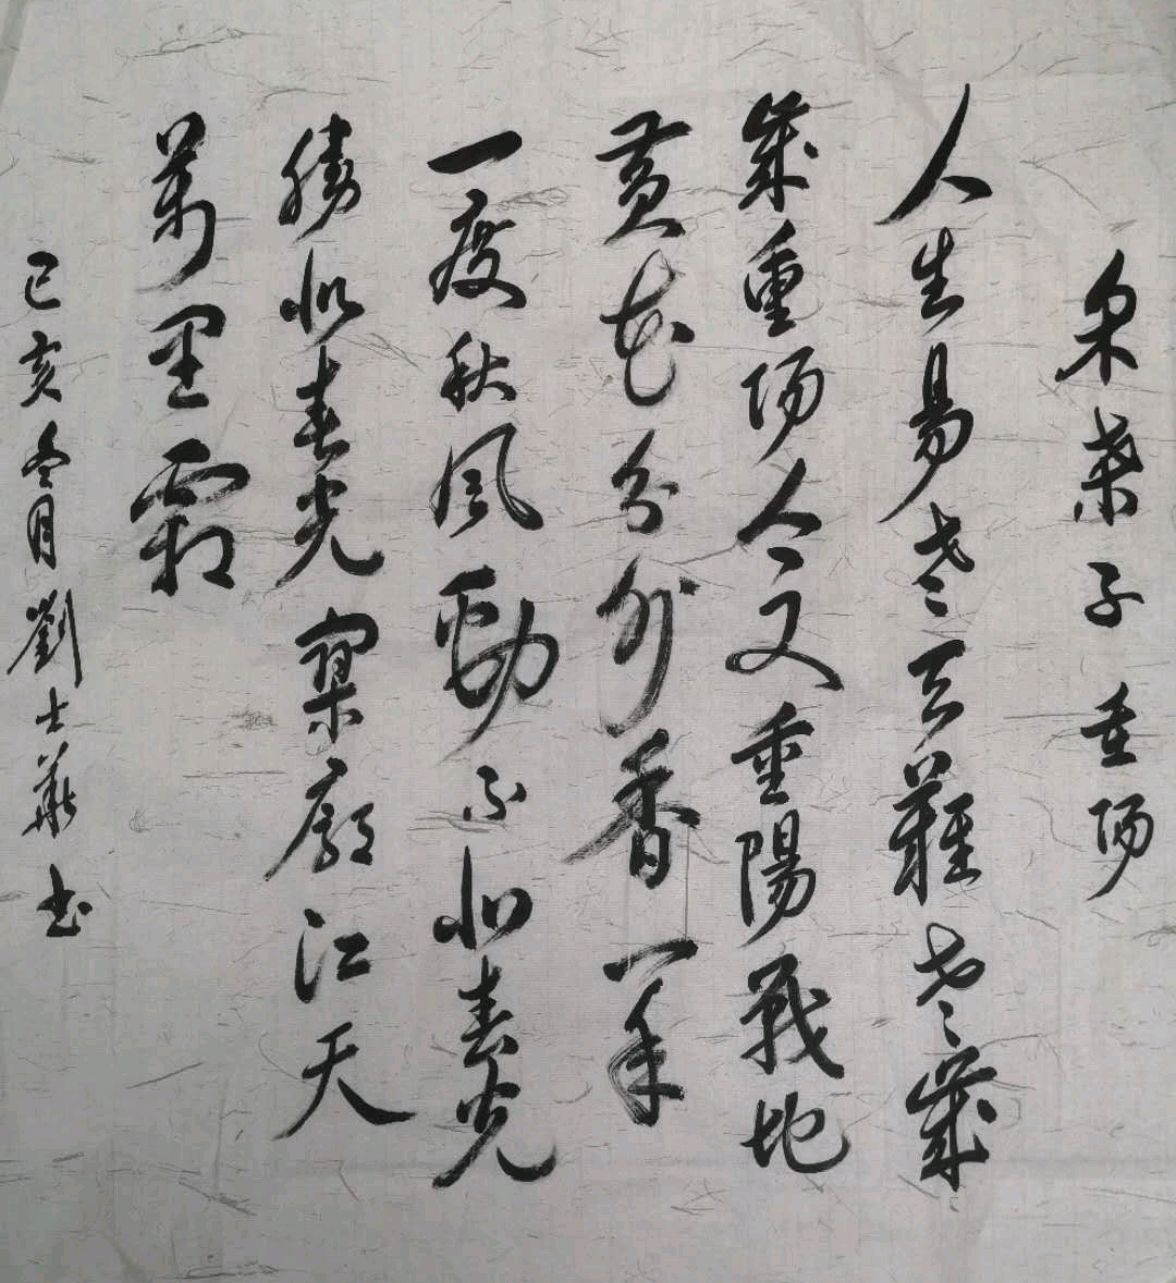 采桑子重陽
人生易老天難老歲
歲重陽今又重陽戰地
黃花分外香一年
一度秋風勁不似春光
勝似春光寥廓江天
萬里霜
己亥冬月劉士華书